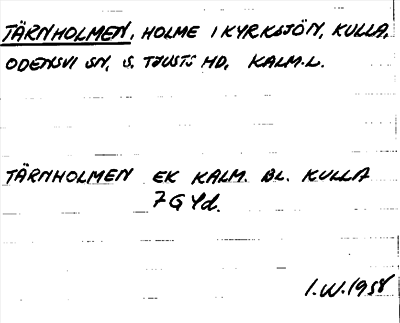 TÄRNHOLMEN, HOLME I KYRKSJÖN, KULLA,
ODENSVI SN, S. TJUSTS HD, KALM.L.
TÄRNHOLMEN EK KALM. BL. KULLA
7G Yd.
I.W.1958